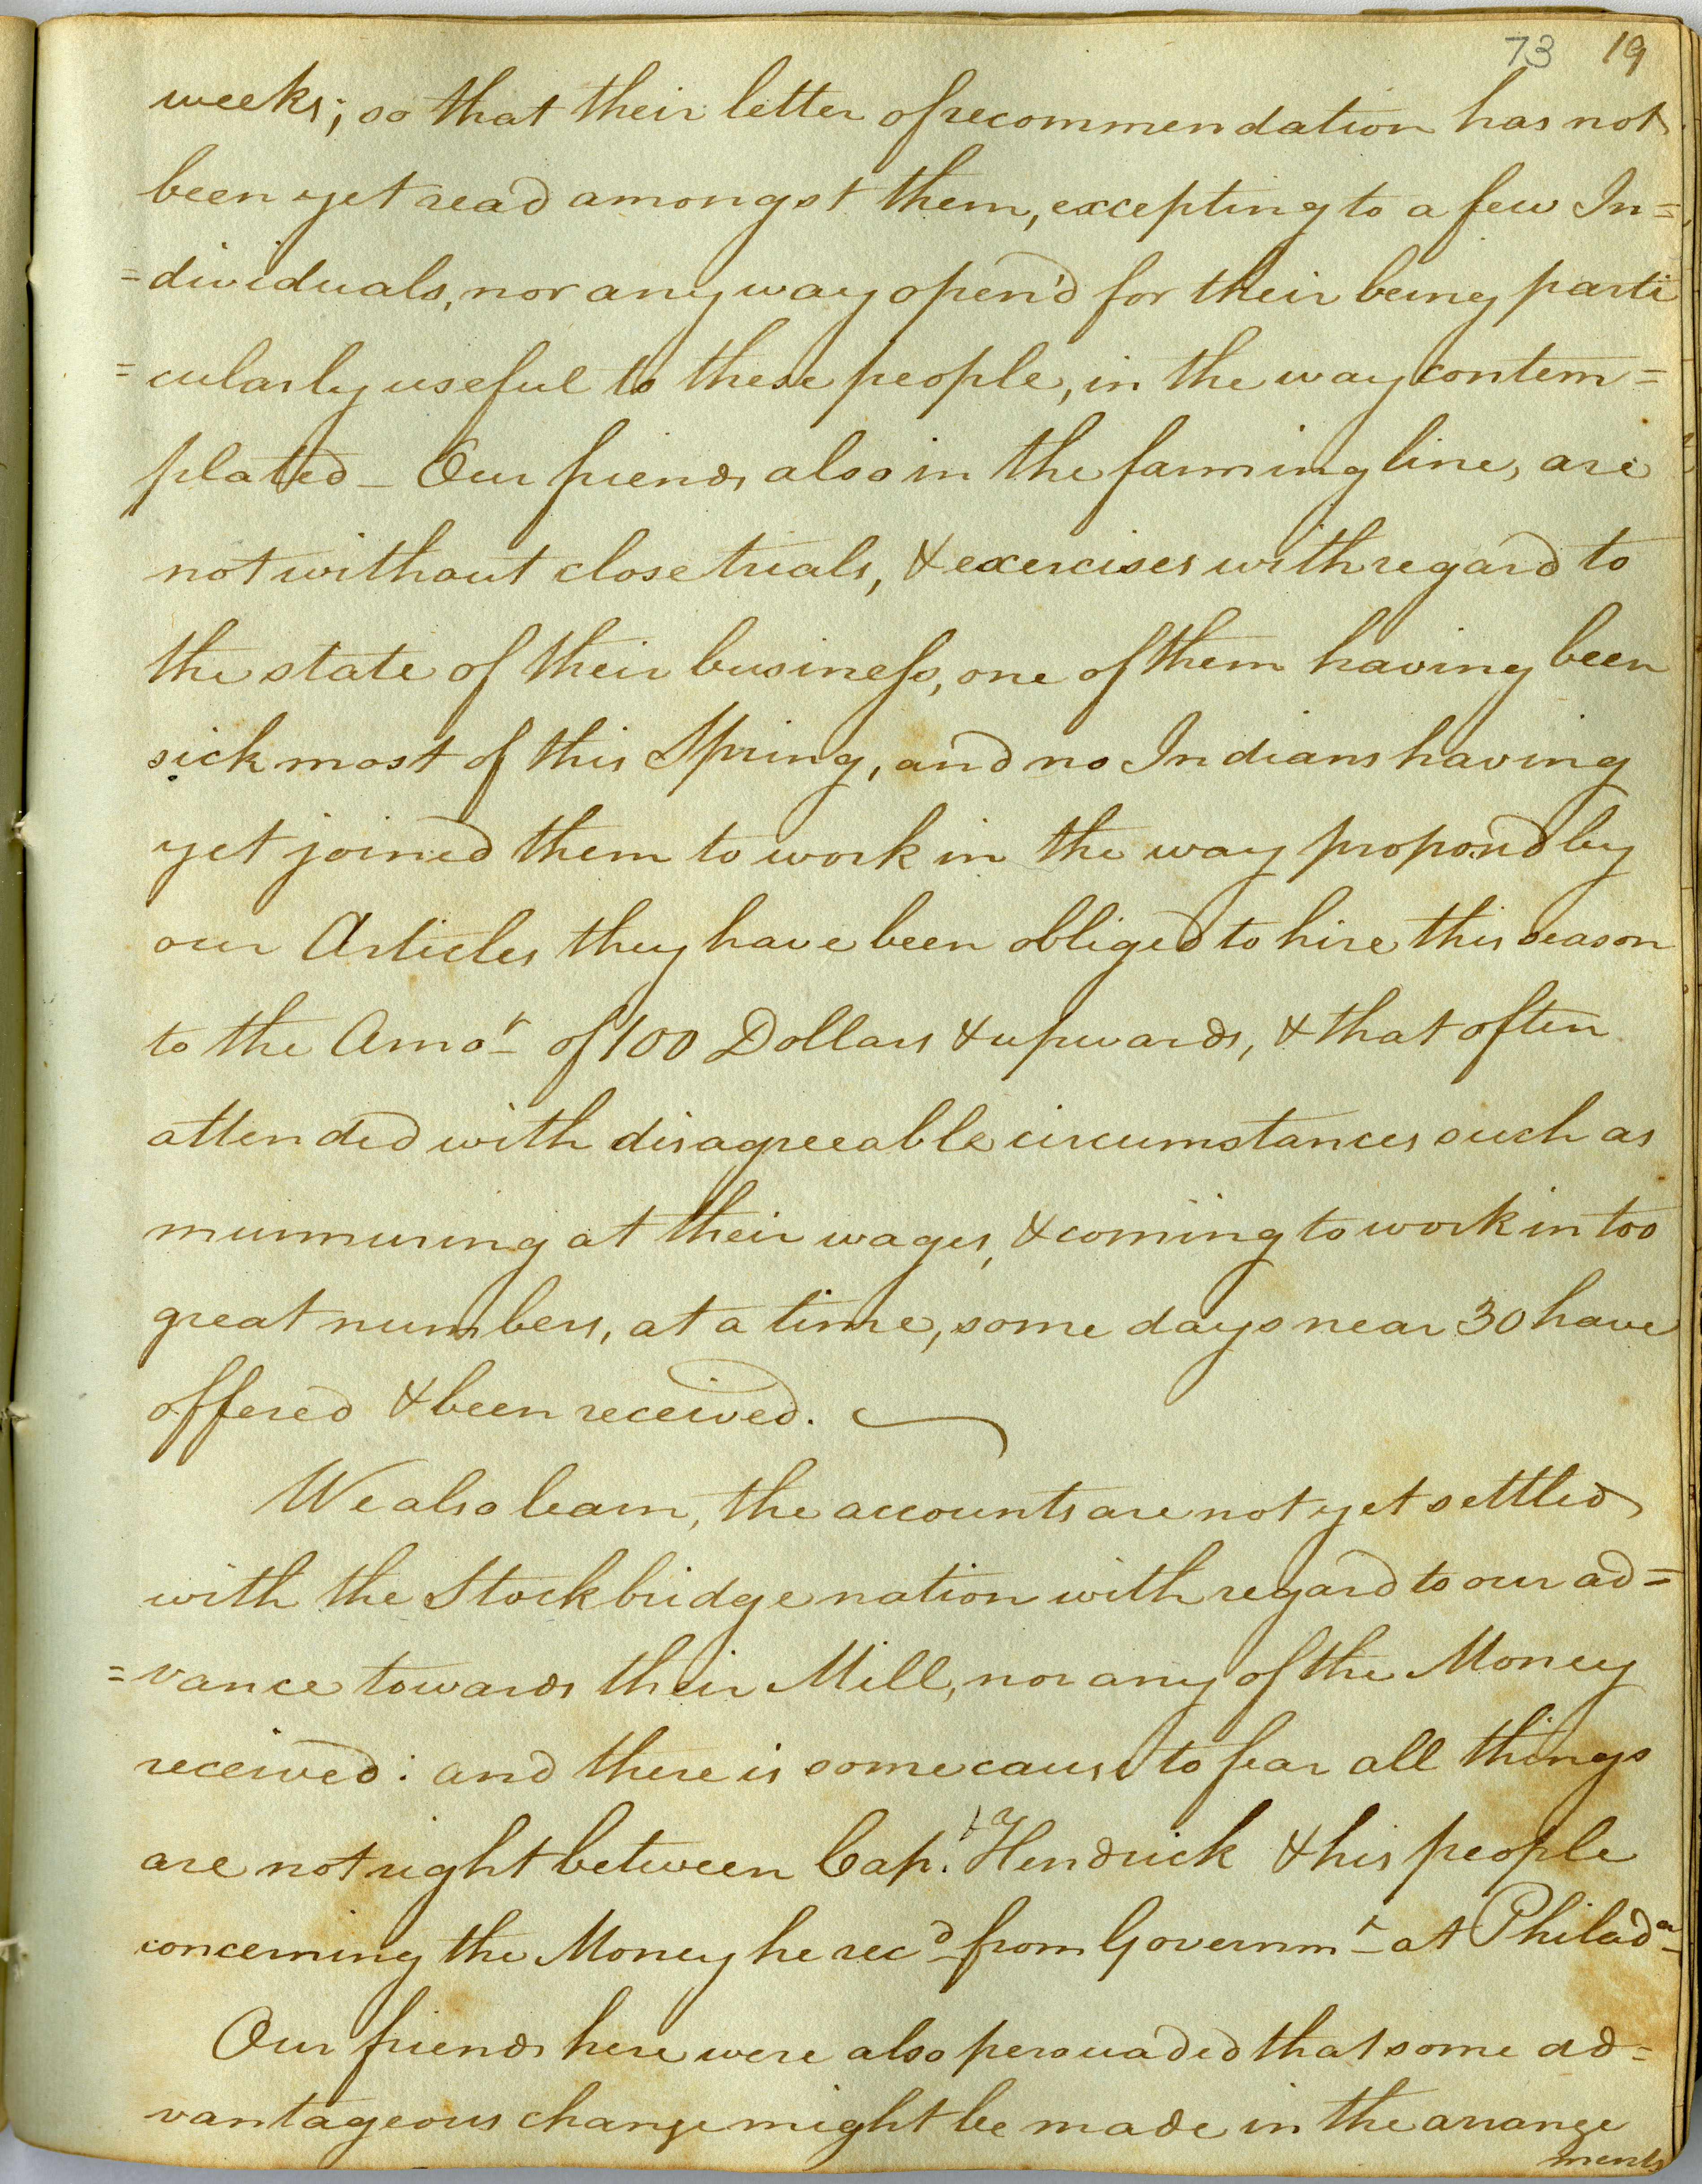 73 19
weeks; so that their letter of recommendation has not
been yet read amongst them, excepting to a few In=
=dividuals, nor any way open'd for their being parti
=cularly useful to these people, in the way contem=
plated – Our friends also in the farming line, are
not without close trials, & exercises with regard to
the state of their business, one of them having been
sick most of this Spring, and no Indians having
yet joined them to work in the way propos'd by
our Articles they have been obliged to hire this season
to the Amot of 100 Dollars & upwards, & that often
attended with disagreeable circumstances such as
murmuring at their wages, & coming to work in too
great numbers, at a time, some days near 30 have
offered & been received.
We also learn, the accounts are not yet settled
with the Stockbridge nation with regard to our ad=
=vance towards their Mill, nor any of the Money
received: and there is some cause to fear all things
are not right between Capt. Hendrick & his people
concerning the Money he recd from Governmt at Philada
Our friends here were also persuaded that some ad=
vantageous change might be made in the arrange
ments